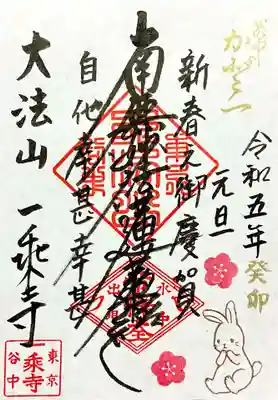 令和五年 癸卯
元旦
新春之御慶賀
南無妙法蓮華経
自他幸甚幸甚
大法山 一乗寺
東京
一乗寺
谷中